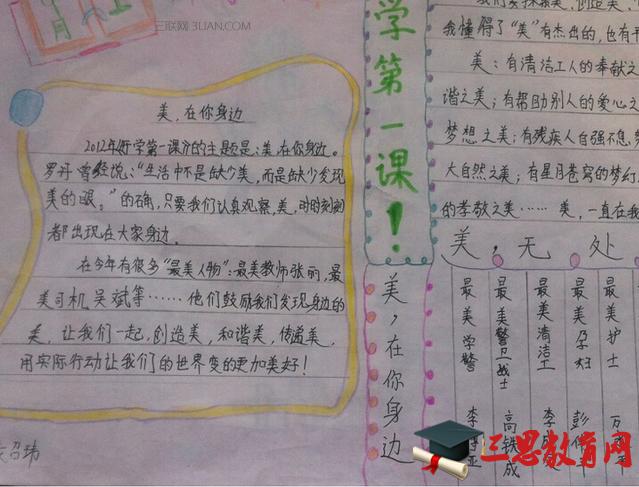 三联网 3LIAN.COM
月
上
美,在你身边
2012年开学第一课的主题是:美,在你身边。
罗丹曾经说:“生活中不是缺少美,而是缺少发现
美的眼。”的确,只要我们认真观察,美,时时刻刻
都出现在大家身边。
在今年有很多“最美人物”:最美教师张丽,最
美司机吴斌等……他们鼓励我们发现身边的
美,让我们一起,创造美,和谐美,传递美,
用实际行动让我们的世界变的更加美好!
召玮
学第一课!
美,在你身边
我懂得了“美”有杰出的,也有平
美:有清洁工人的奉献之
谐之美;有帮助别人的爱心之
梦想之美;有残疾人自强不息,
大自然之美;有星月苍穹的梦幻
的孝敬之美……美,一直在我
美,无处
最美学警 李
最美警卫战士 高铁成
最美清洁工 李
最美孕妇 彭伟平
最美护士
三思教育网